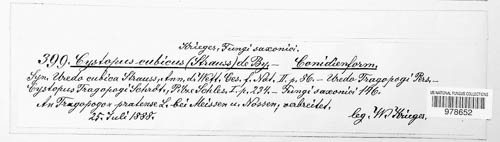 Krieger, Fungi saxonici.
399. Cystopus cubicus (Strauss) de By. – Conidienform.
Syn. Uredo cubica Strauss, Ann. d. Wett. Ges. f. Nat. II. p. 86. – Uredo Tragopogi Pers. –
Cystopus Tragopogi Schröt., Pilze Schles. I. p. 234. – Fungi saxonici 146.
An Tragopogon pratense L. bei Meissen u. Nossen, verbreitet.
25. Juli 1888.
leg. W. Krieger.
US NATIONAL FUNGUS COLLECTIONS
978652